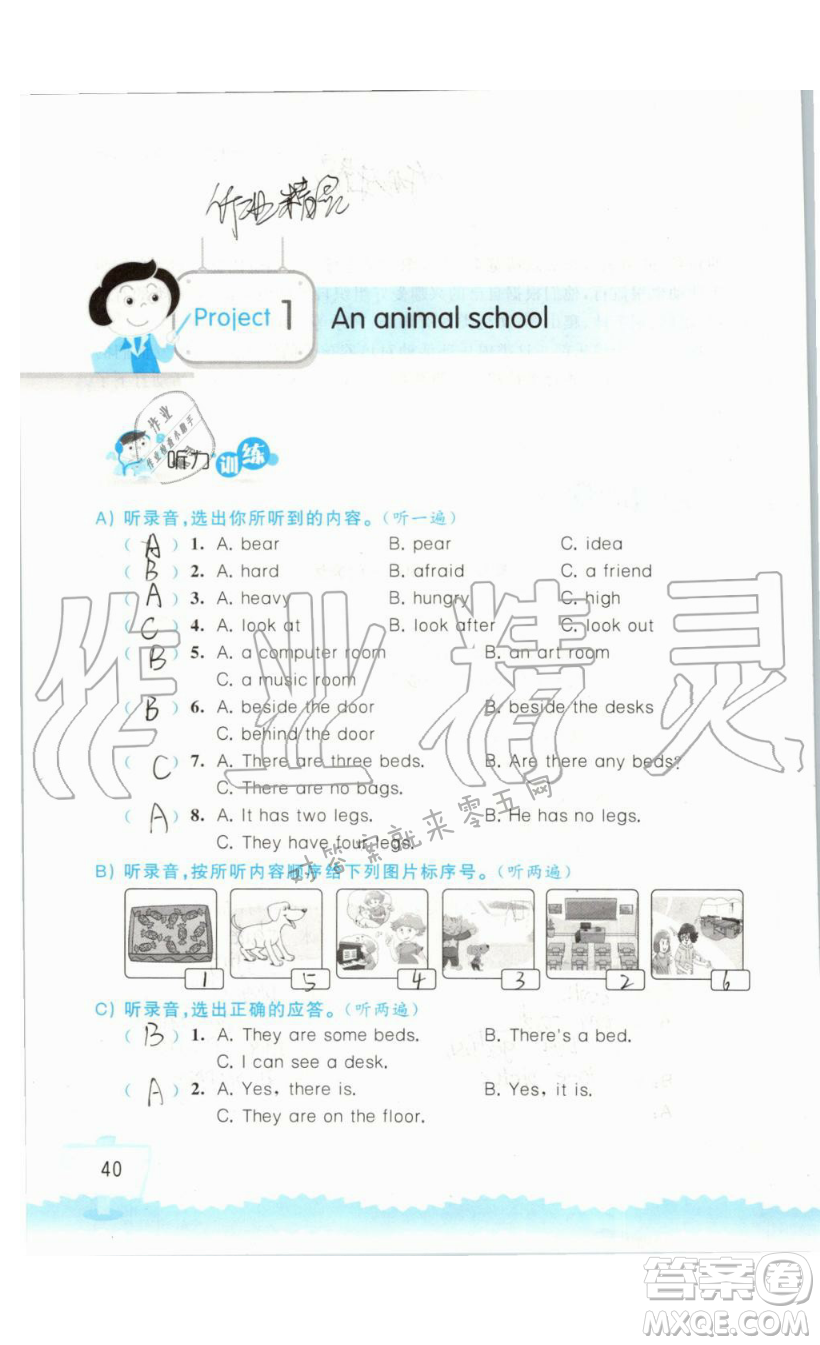 作业精灵
Project 1 An animal school
作业
作业检查小助手
听力训练
A) 听录音,选出你所听到的内容。(听一遍)
( A ) 1. A. bear B. pear C. idea
( B ) 2. A. hard B. afraid C. a friend
( A ) 3. A. heavy B. hungry C. high
( C ) 4. A. look at B. look after C. look out
( B ) 5. A. a computer room B. an art room
C. a music room
( B ) 6. A. beside the door B. beside the desks
C. behind the door
( C ) 7. A. There are three beds. B. Are there any beds?
C. There are no bags.
( A ) 8. A. It has two legs. B. He has no legs.
C. They have four legs.
作业精灵
对答案就来零五网
B) 听录音,按所听内容顺序给下列图片标序号。(听两遍)
1 5 4 3 2 6
C) 听录音,选出正确的应答。(听两遍)
( B ) 1. A. They are some beds. B. There's a bed.
C. I can see a desk.
( A ) 2. A. Yes, there is. B. Yes, it is.
C. They are on the floor.
40
答案圈
MXQE.COM